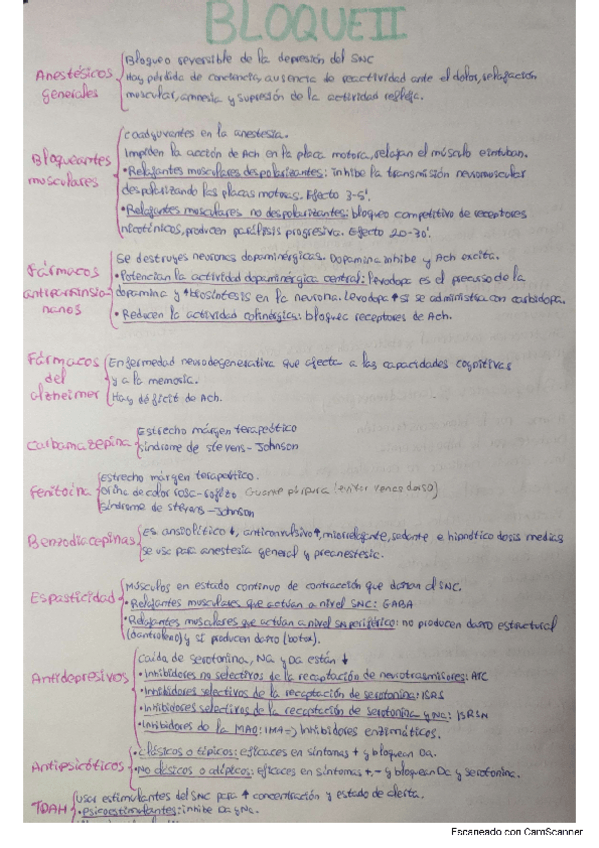 BLOQUE II
Anestésicos generales
Bloqueo reversible de la depresión del SNC
Hay pérdida de conciencia, ausencia de reactividad ante el dolor, relajación
muscular, amnesia y supresión de la actividad refleja.
Bloqueantes musculares
Coadyuvantes en la anestesia.
Impiden la acción de Ach en la placa motora, relajan el músculo e intuban.
• Relajantes musculares despolarizantes: inhibe la transmisión neuromuscular
despolarizando las placas motoras. Efecto 3-5'.
• Relajantes musculares no despolarizantes: bloqueo competitivo de receptores
nicotínicos, producen parálisis progresiva. Efecto 20-30'.
Fármacos antiparkinsonianos
Se destruyes neuronas dopaminérgicas. Dopamina inhibe y Ach excita.
• Potencian la actividad dopaminérgica central: levodopa es el precurso de la
dopamina y ↑ biosíntesis en la neurona. Levodopa ↑ si se administra con carbidopa.
• Reducen la actividad colinérgica: bloquec receptores de Ach.
Fármacos del alzheimer
Enfermedad neurodegenerativa que afecta a las capacidades cognitivas
y a la memoria.
Hay déficit de Ach.
Carbamazepina
Estrecho márgen terapeótico
síndrome de stevens-Johnson
Fenitoína
estrecho márgen terapeótico.
orina de color rosa-rojizo Guante púrpura
síndrome de stevens-Johnson
Benzodiacepinas
es ansiolítico ↓, anticonvulsivo ↑, miorrelajante, sedante e hipnótico dosis medias
se usa para anestesia general y preanestesia.
Espasticidad
Músculos en estado continuo de contracción que dañan el SNC.
• Relajantes musculares que actúan a nivel SNC: GABA
• Relajantes musculares que actúan a nivel SN periférico: no producen daño estructural
(dantroleno) y sí producen daño (botox).
Antidepresivos
Caída de serotonina, Na y Da están ↓
• Inhibidores no selectivos de la recaptación de neurotrasmisores: ATC
• Inhibidores selectivos de la recaptación de serotonina: ISRS
• Inhibidores selectivos de la recaptación de serotonina y Na: ISRSN
• Inhibidores de la MAO: IMA => Inhibidores enzimáticos.
Antipsicóticos
• Clásicos o típicos: eficaces en síntomas + y bloquean Da.
• No clásicos o atípicos: eficaces en síntomas +,- y bloquean Da y serotonina.
TDAH
usar estimulantes del SNC para ↑ concentración y estado de alerta.
• psicoestimulantes: inhibe Da y Na.
Escaneado con CamScanner